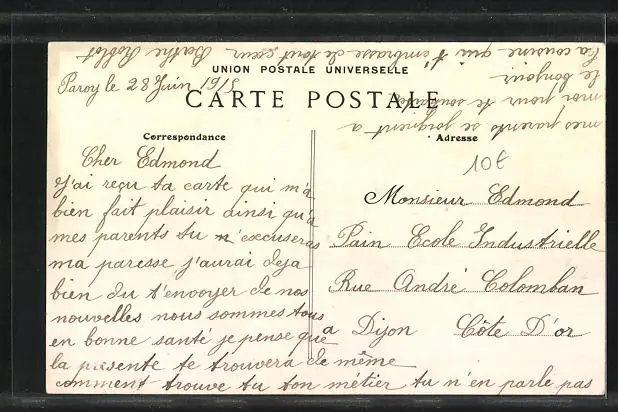 UNION POSTALE UNIVERSELLE
CARTE POSTALE
Correspondance
Adresse
10€
Paroy le 28 Juin 1915
Cher Edmond
J'ai reçu ta carte qui m'a
bien fait plaisir ainsi qu'a
mes parents tu m'excuseras
ma paresse j'aurai deja
bien du t'envoyer de nos
nouvelles nous sommes tous
en bonne santé je pense que
la présente te trouvera de même
comment trouve tu ton métier tu n'en parle pas
Monsieur Edmond
Pain Ecole Industrielle
Rue André Colomban
a Dijon Côte D'or
mes parents se joignent a
moi pour te souhaiter
le bonjour
Ta cousine qui t'embrasse de tout cœur Berthe